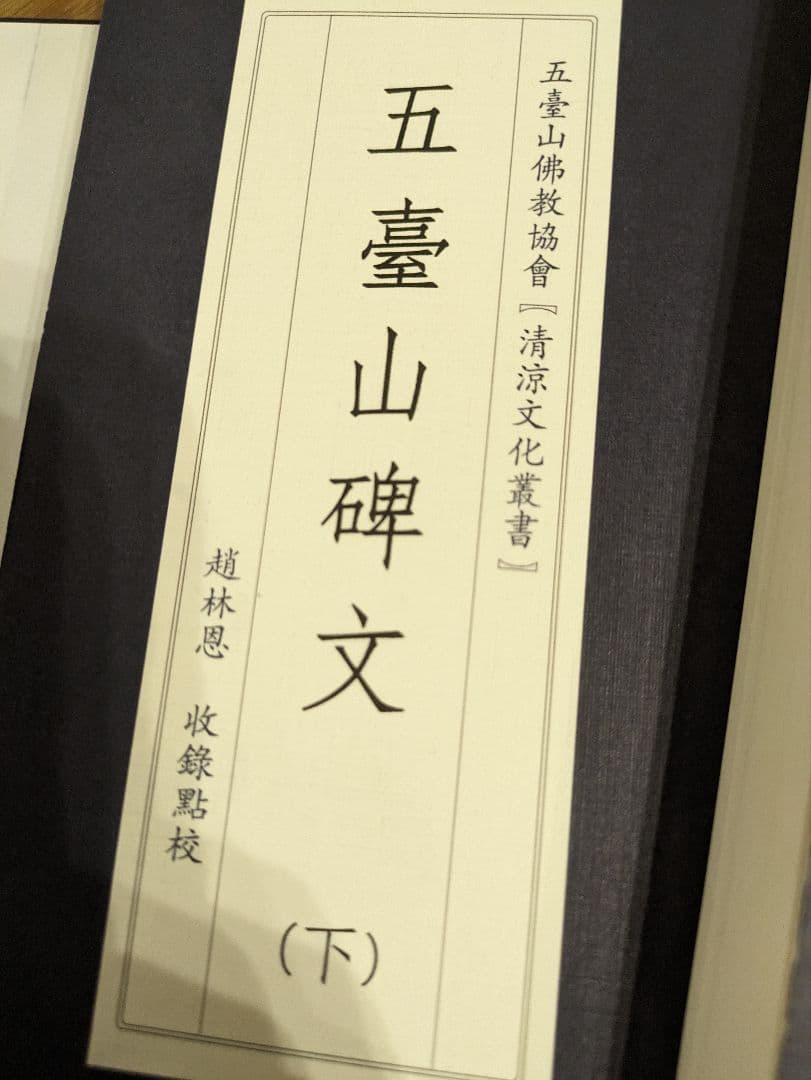 五臺山佛教協會【清涼文化叢書】
五臺山碑文
(下)
趙林恩 收錄點校